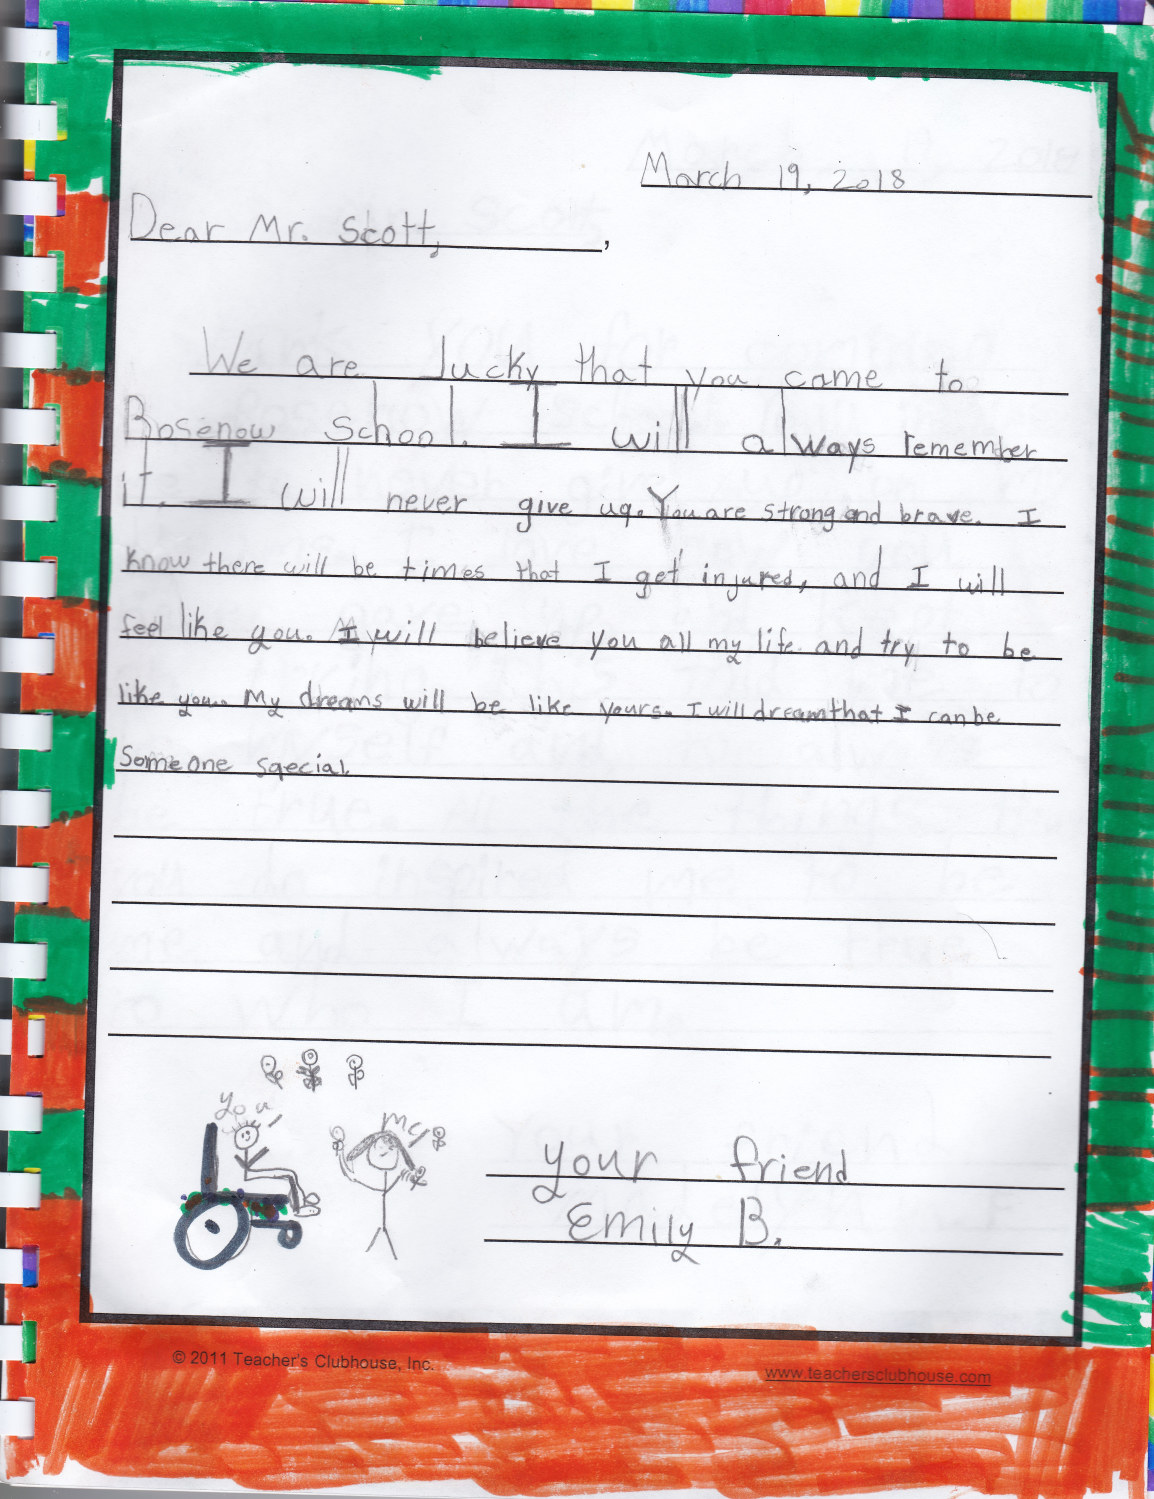 March 19, 2018
Dear Mr. Scott, ,
We are lucky that you came to
Rosenow school. I will always remember
it. I will never give uq. You are strong and brave. I
know there will be times that I get injured, and I will
feel like you. I will believe you all my life and try to be
like you. My dreams will be like yours. I will dream that I can be
Someone sqecial.
you
me
your friend
Emily B.
© 2011 Teacher's Clubhouse, Inc.
www.teachersclubhouse.com